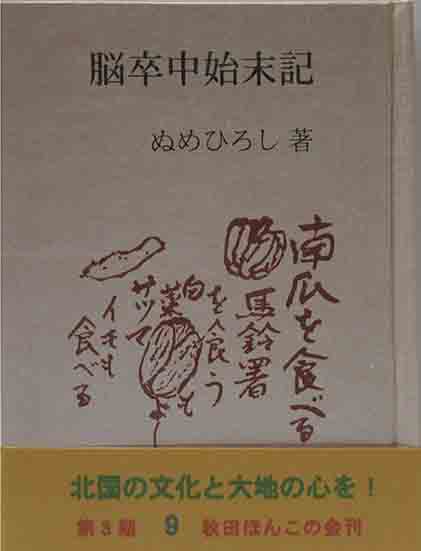 脳卒中始末記
ぬめひろし 著
南瓜を食べる
馬鈴署
を食う
白菜もよし
サツマ
イモも
食べる
北国の文化と大地の心を!
第3期 9 秋田ほんこの会刊